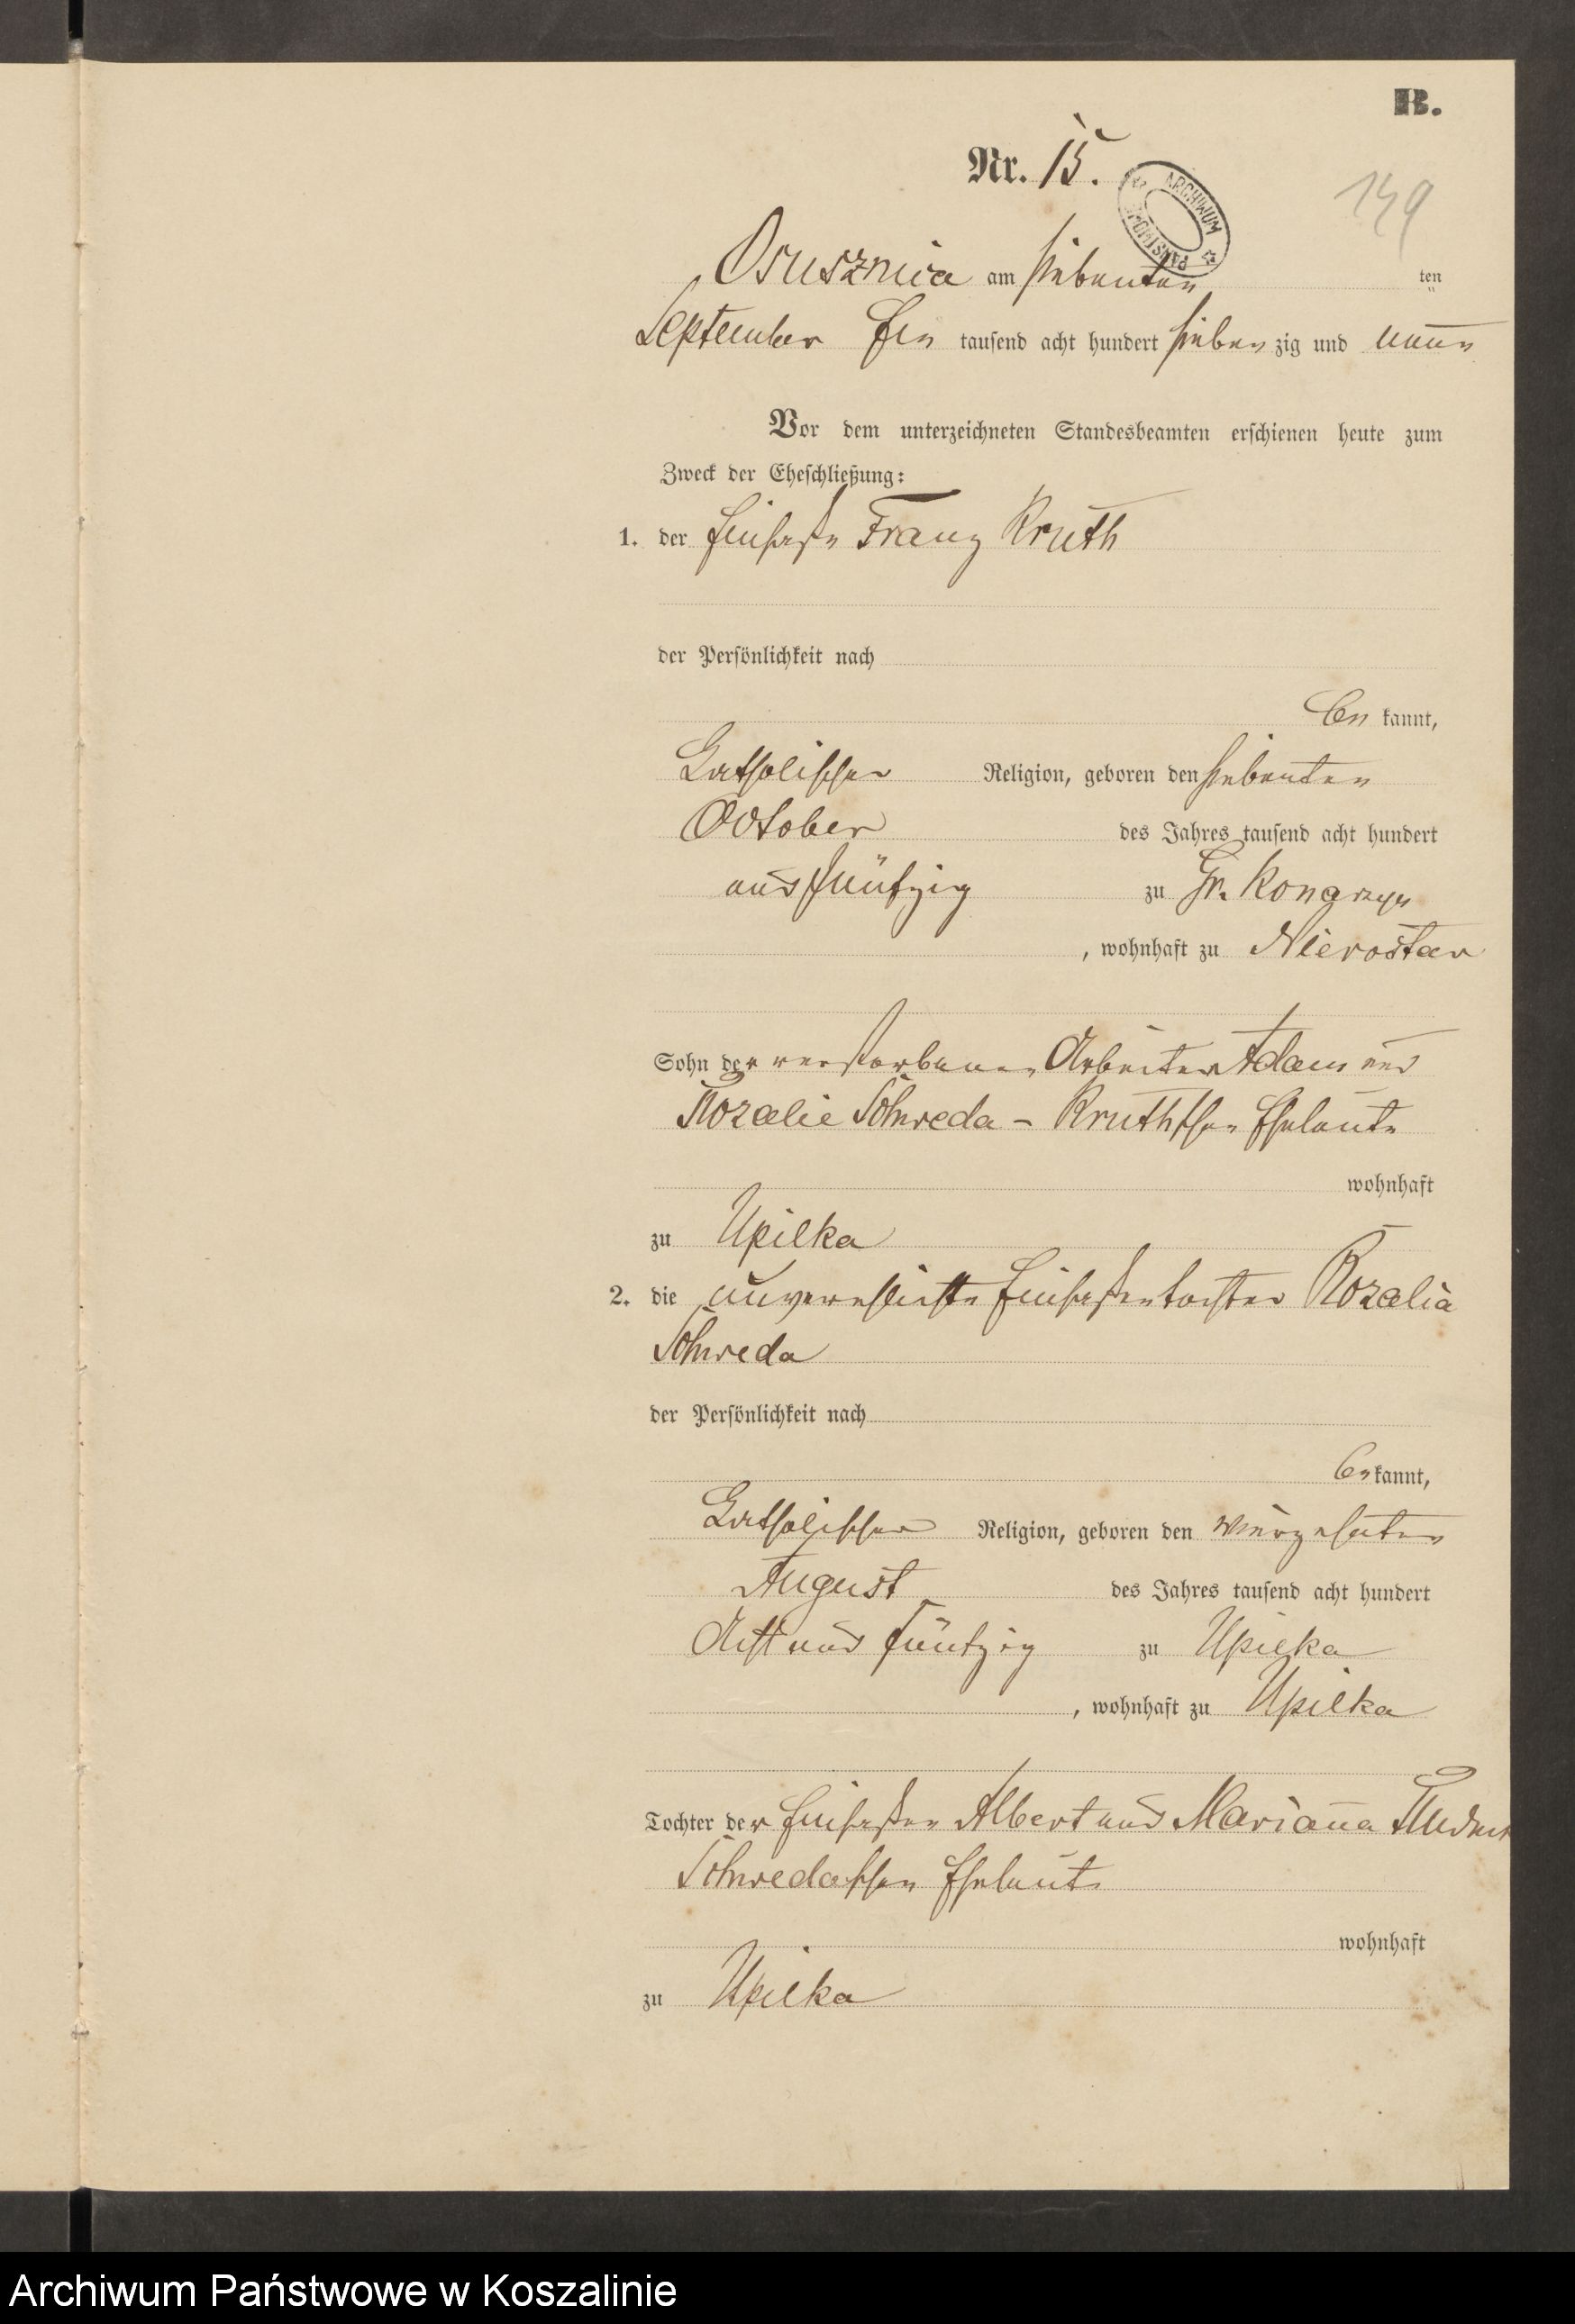 B.
Nr. 15.
ARCHIWUM PAŃSTWOWE
149
Osusznica am siebenten ten
September Ein tausend acht hundert sieben zig und neun
Vor dem unterzeichneten Standesbeamten erschienen heute zum
Zweck der Eheschließung:
1. der Einsasse Franz Kruth
der Persönlichkeit nach
be kannt,
Katholischer Religion, geboren den siebenten
October des Jahres tausend acht hundert
und fünfzig zu Gr. Konarzyn
, wohnhaft zu Nierostaw
Sohn der verstorbenen Arbeiter Adam und
Rozalie Schweda - Kruthschen Eheleute
wohnhaft
zu Upilka
2. die unverehlichte Einsassentochter Rozalia
Schweda
der Persönlichkeit nach
be kannt,
Katholischer Religion, geboren den vierzehnten
August des Jahres tausend acht hundert
Acht und fünfzig zu Upilka
, wohnhaft zu Upilka
Tochter der Einsassen Albert und Marianna
Schwedaschen Eheleute
wohnhaft
zu Upilka
Archiwum Państwowe w Koszalinie